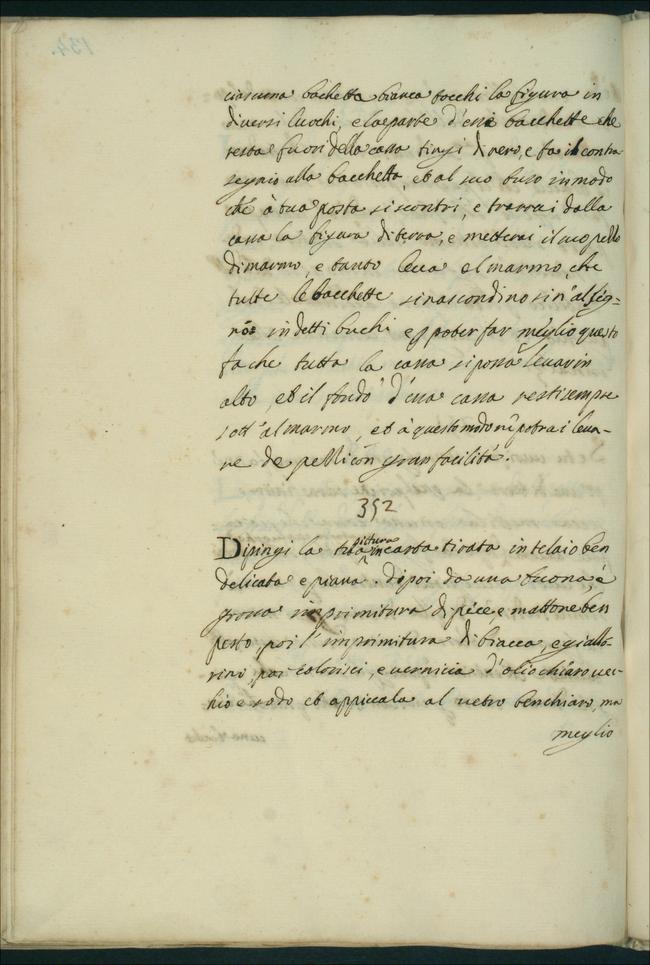 ciascuna bachetta bianca tocchi la figura in
diversi luochi, e la parte d'essi bacchette che
resta fuori della cassa tingi di nero, e fa il contra
segnio alla bacchetta, et al suo buso in modo
che à tua posta si scontri, e trarrai dalla
cassa la figura di terra, e metterai il tuo pezzo
di marmo, e tanto leva el marmo, che
tutte le bacchette si nascondino sin' al seg-
no in detti buchi e p poter far meglio questo
fa che tutta la cassa si possa levar in
alto, et il fondo d'essa cassa resti sempre
sott' al marmo, et à questo modo potrai leva-
re de pezzi con gran facilità.
352
Dipingi la tua pictura in carta tirata in telaio ben
delicata e piana. dipoi da una buona, e
grossa imprimitura di pece e mattone ben
pesto, poi l' imprimitura di biacca, e giallo-
rino, poi colorisci, e vernicia d'olio chiaro vec-
hio e sodo et appiccala al vetro ben chiaro, ma
meglio
134.